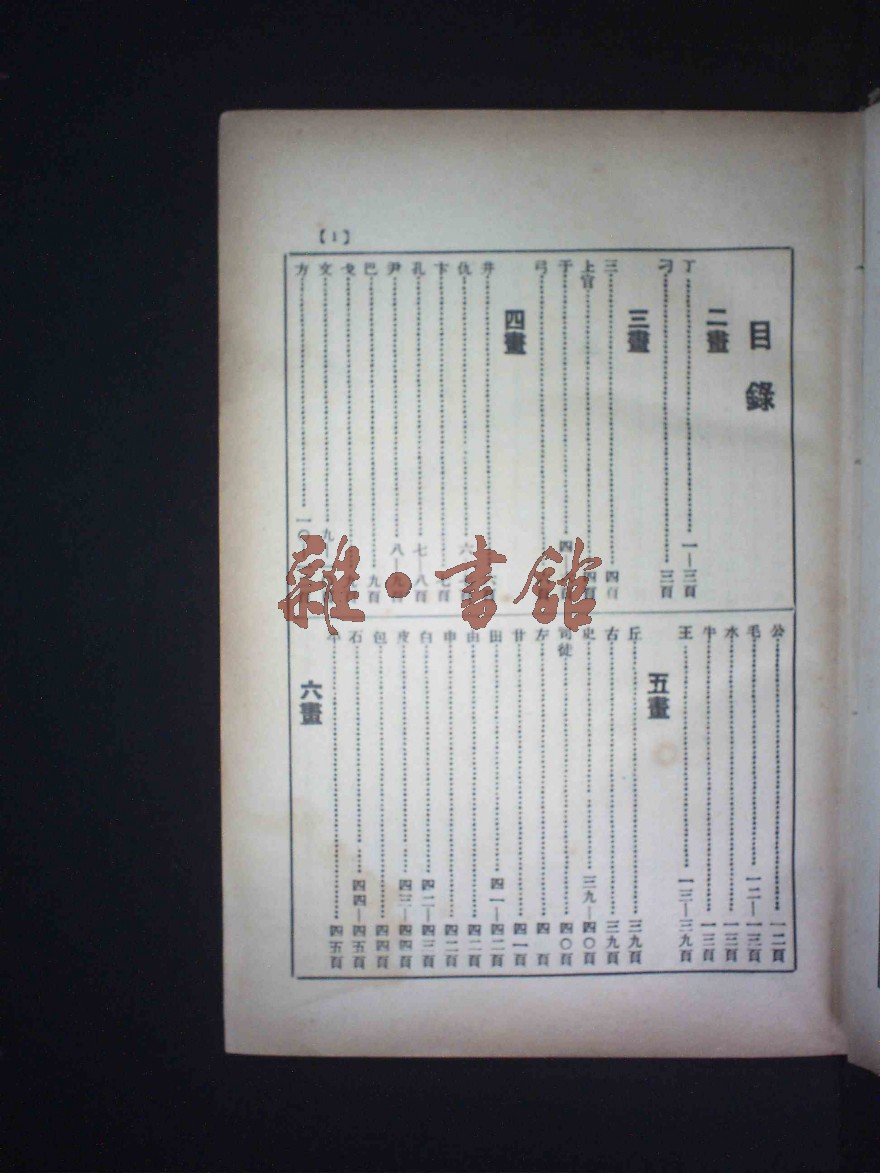 【1】
目錄
二畫
丁 一—三頁
刁 三頁
三畫
三 四頁
上官 四頁
于 四
弓
四畫
井
仇 六
卞 七頁
孔 七—八頁
尹 八—九頁
巴 九頁
戈 九頁
文 九
方 一〇
公 一二頁
毛 一二—一三頁
水 一三頁
牛 一三頁
王 一三—三九頁
五畫
丘 三九頁
古 三九頁
史 三九—四〇頁
司徒 四〇頁
左 四頁
甘 四一頁
田 四一—四二頁
由 四二頁
申 四二頁
白 四二—四三頁
皮 四三—四四頁
包 四四頁
石 四四—四五頁
四五頁
六畫
雜·書館